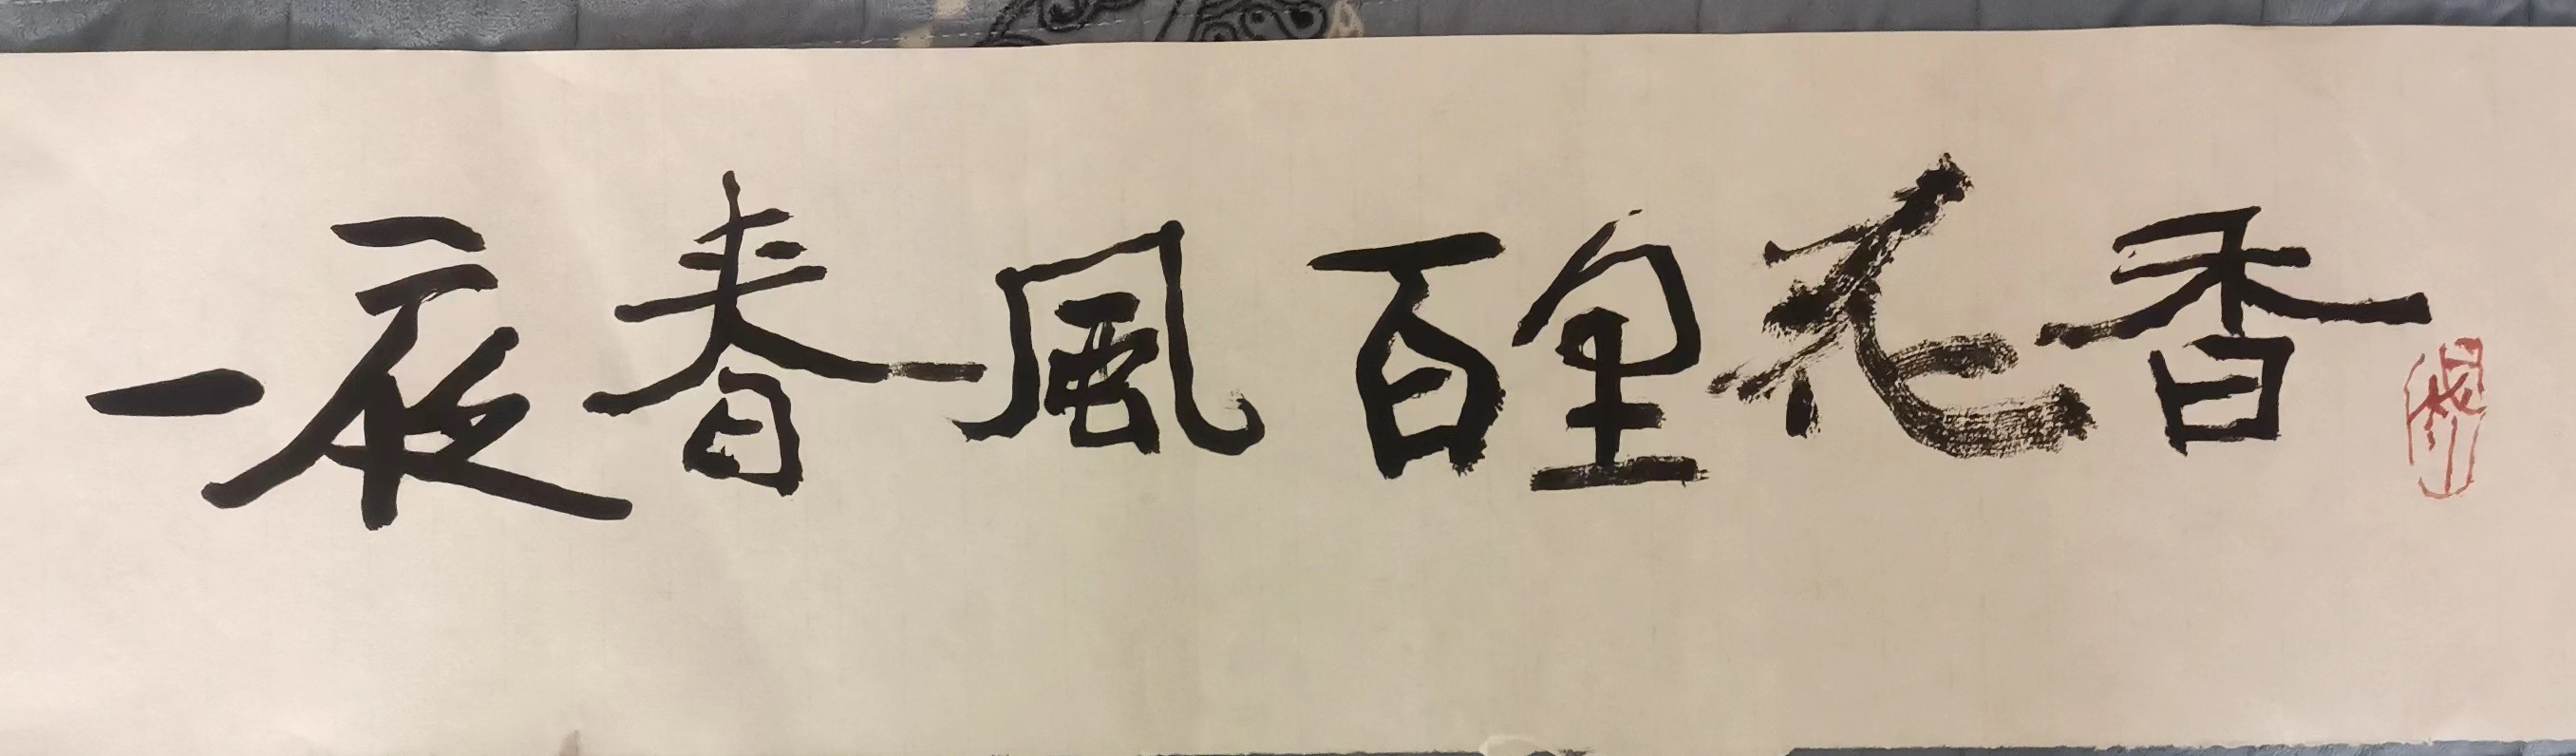 一夜春風百里花香